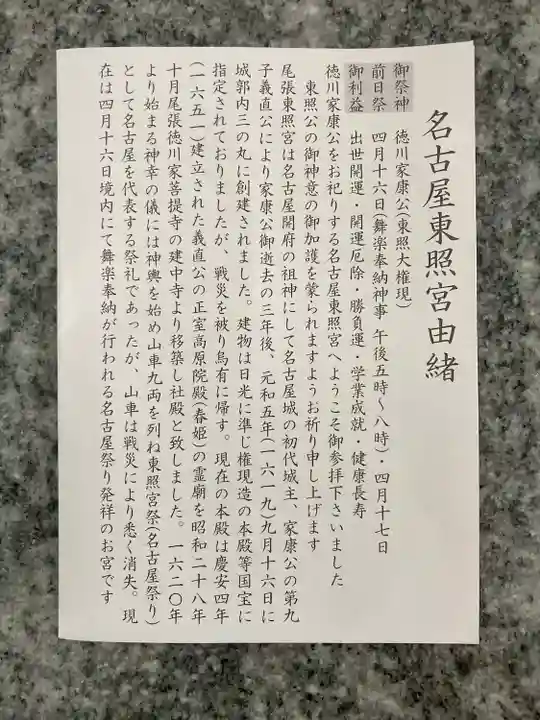 名古屋東照宮由緒
御祭神　徳川家康公(東照大権現)
前日祭　四月十六日(舞楽奉納神事 午後五時～八時)・四月十七日
御利益　出世開運・開運厄除・勝負運・学業成就・健康長寿
徳川家康公をお祀りする名古屋東照宮へようこそ御参拝下さいました
東照公の御神意の御加護を蒙られますようお祈り申し上げます
尾張東照宮は名古屋開府の祖神にして名古屋城の初代城主、家康公の第九
子義直公により家康公御逝去の三年後、元和五年(一六一九)九月十六日に
城郭内三の丸に創建されました。建物は日光に準じ権現造の本殿等国宝に
指定されておりましたが、戦災を被り烏有に帰す。現在の本殿は慶安四年
(一六五一)建立された義直公の正室高原院殿(春姫)の霊廟を昭和二十八年
十月尾張徳川家菩提寺の建中寺より移築し社殿と致しました。一六二〇年
より始まる神幸の儀には神輿を始め山車九両を列ね東照宮祭(名古屋祭り)
として名古屋を代表する祭礼であったが、山車は戦災により悉く消失。現
在は四月十六日境内にて舞楽奉納が行われる名古屋祭り発祥のお宮です